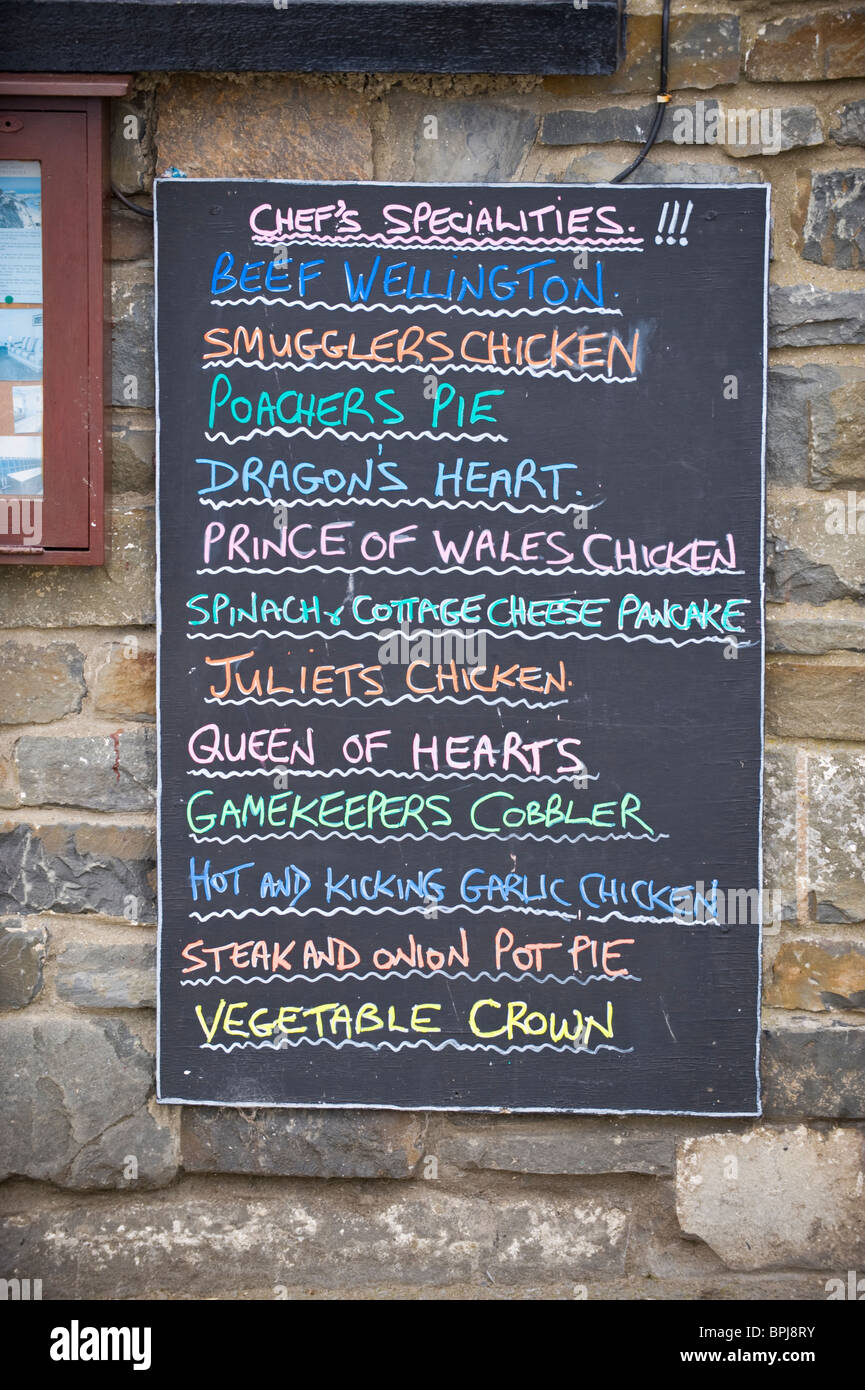 CHEF'S SPECIALITIES. !!!
BEEF WELLINGTON.
SMUGGLERS CHICKEN
POACHERS PIE
DRAGON'S HEART.
PRINCE OF WALES CHICKEN
SPINACH & COTTAGE CHEESE PANCAKE
JULIETS CHICKEN.
QUEEN OF HEARTS
GAMEKEEPERS COBBLER
HOT AND KICKING GARLIC CHICKEN
STEAK AND ONION POT PIE
VEGETABLE CROWN
alamy
Image ID: BPJ8RY
www.alamy.com